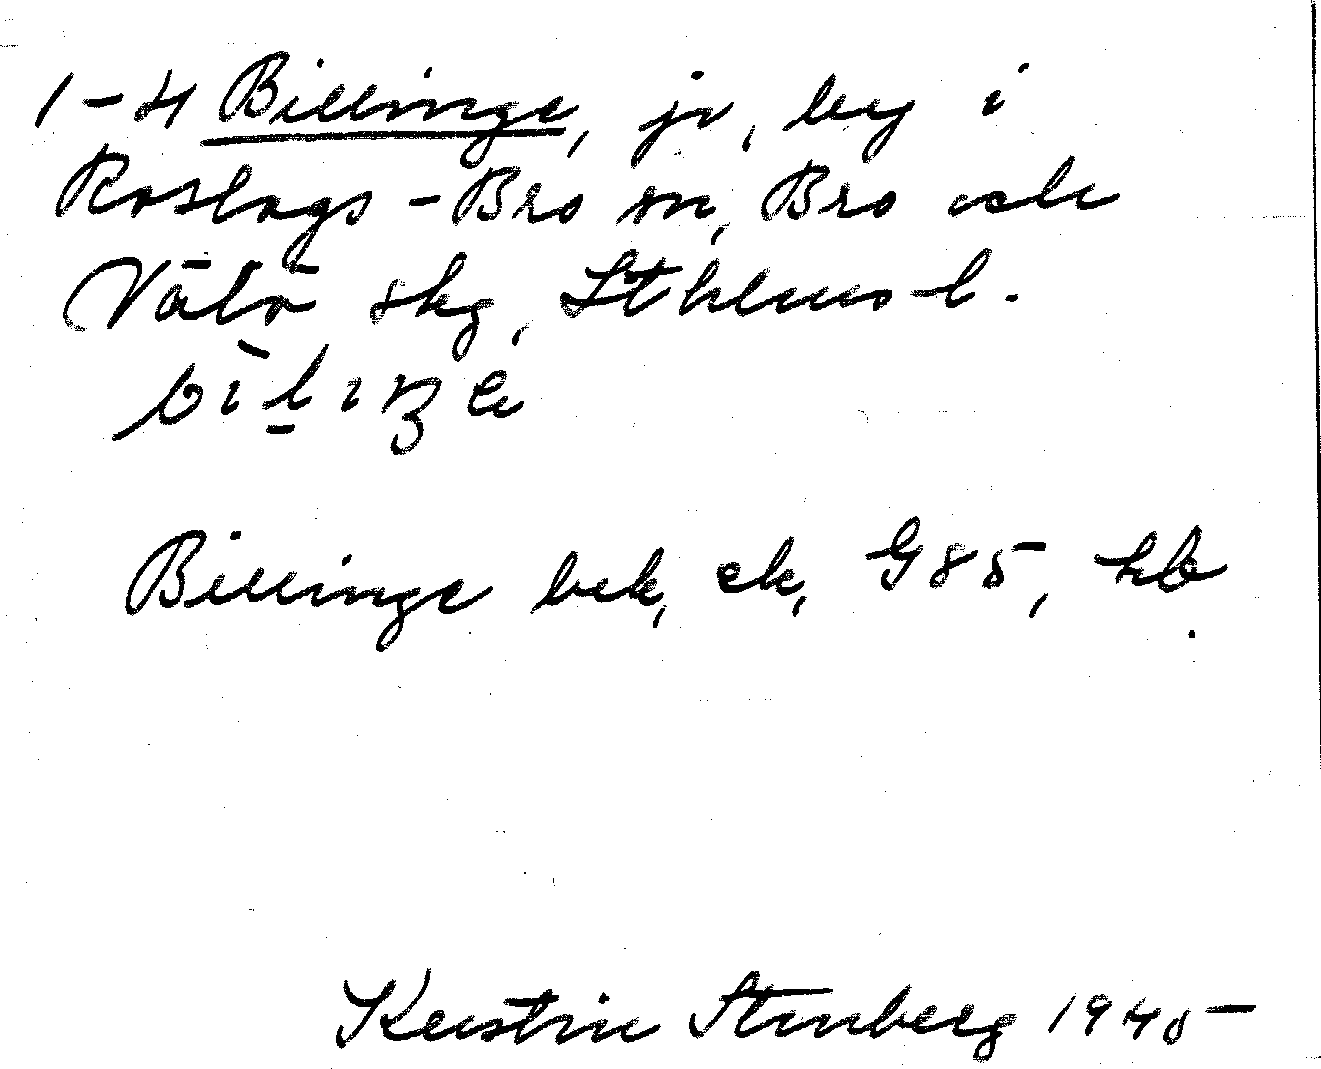 1-4 Billinge, jr, by i
Roslags-Bro sn, Bro och
Vätö skg, Sthlms l.
Billinge bek, ek, G85, hb
Kerstin Stenberg 1945